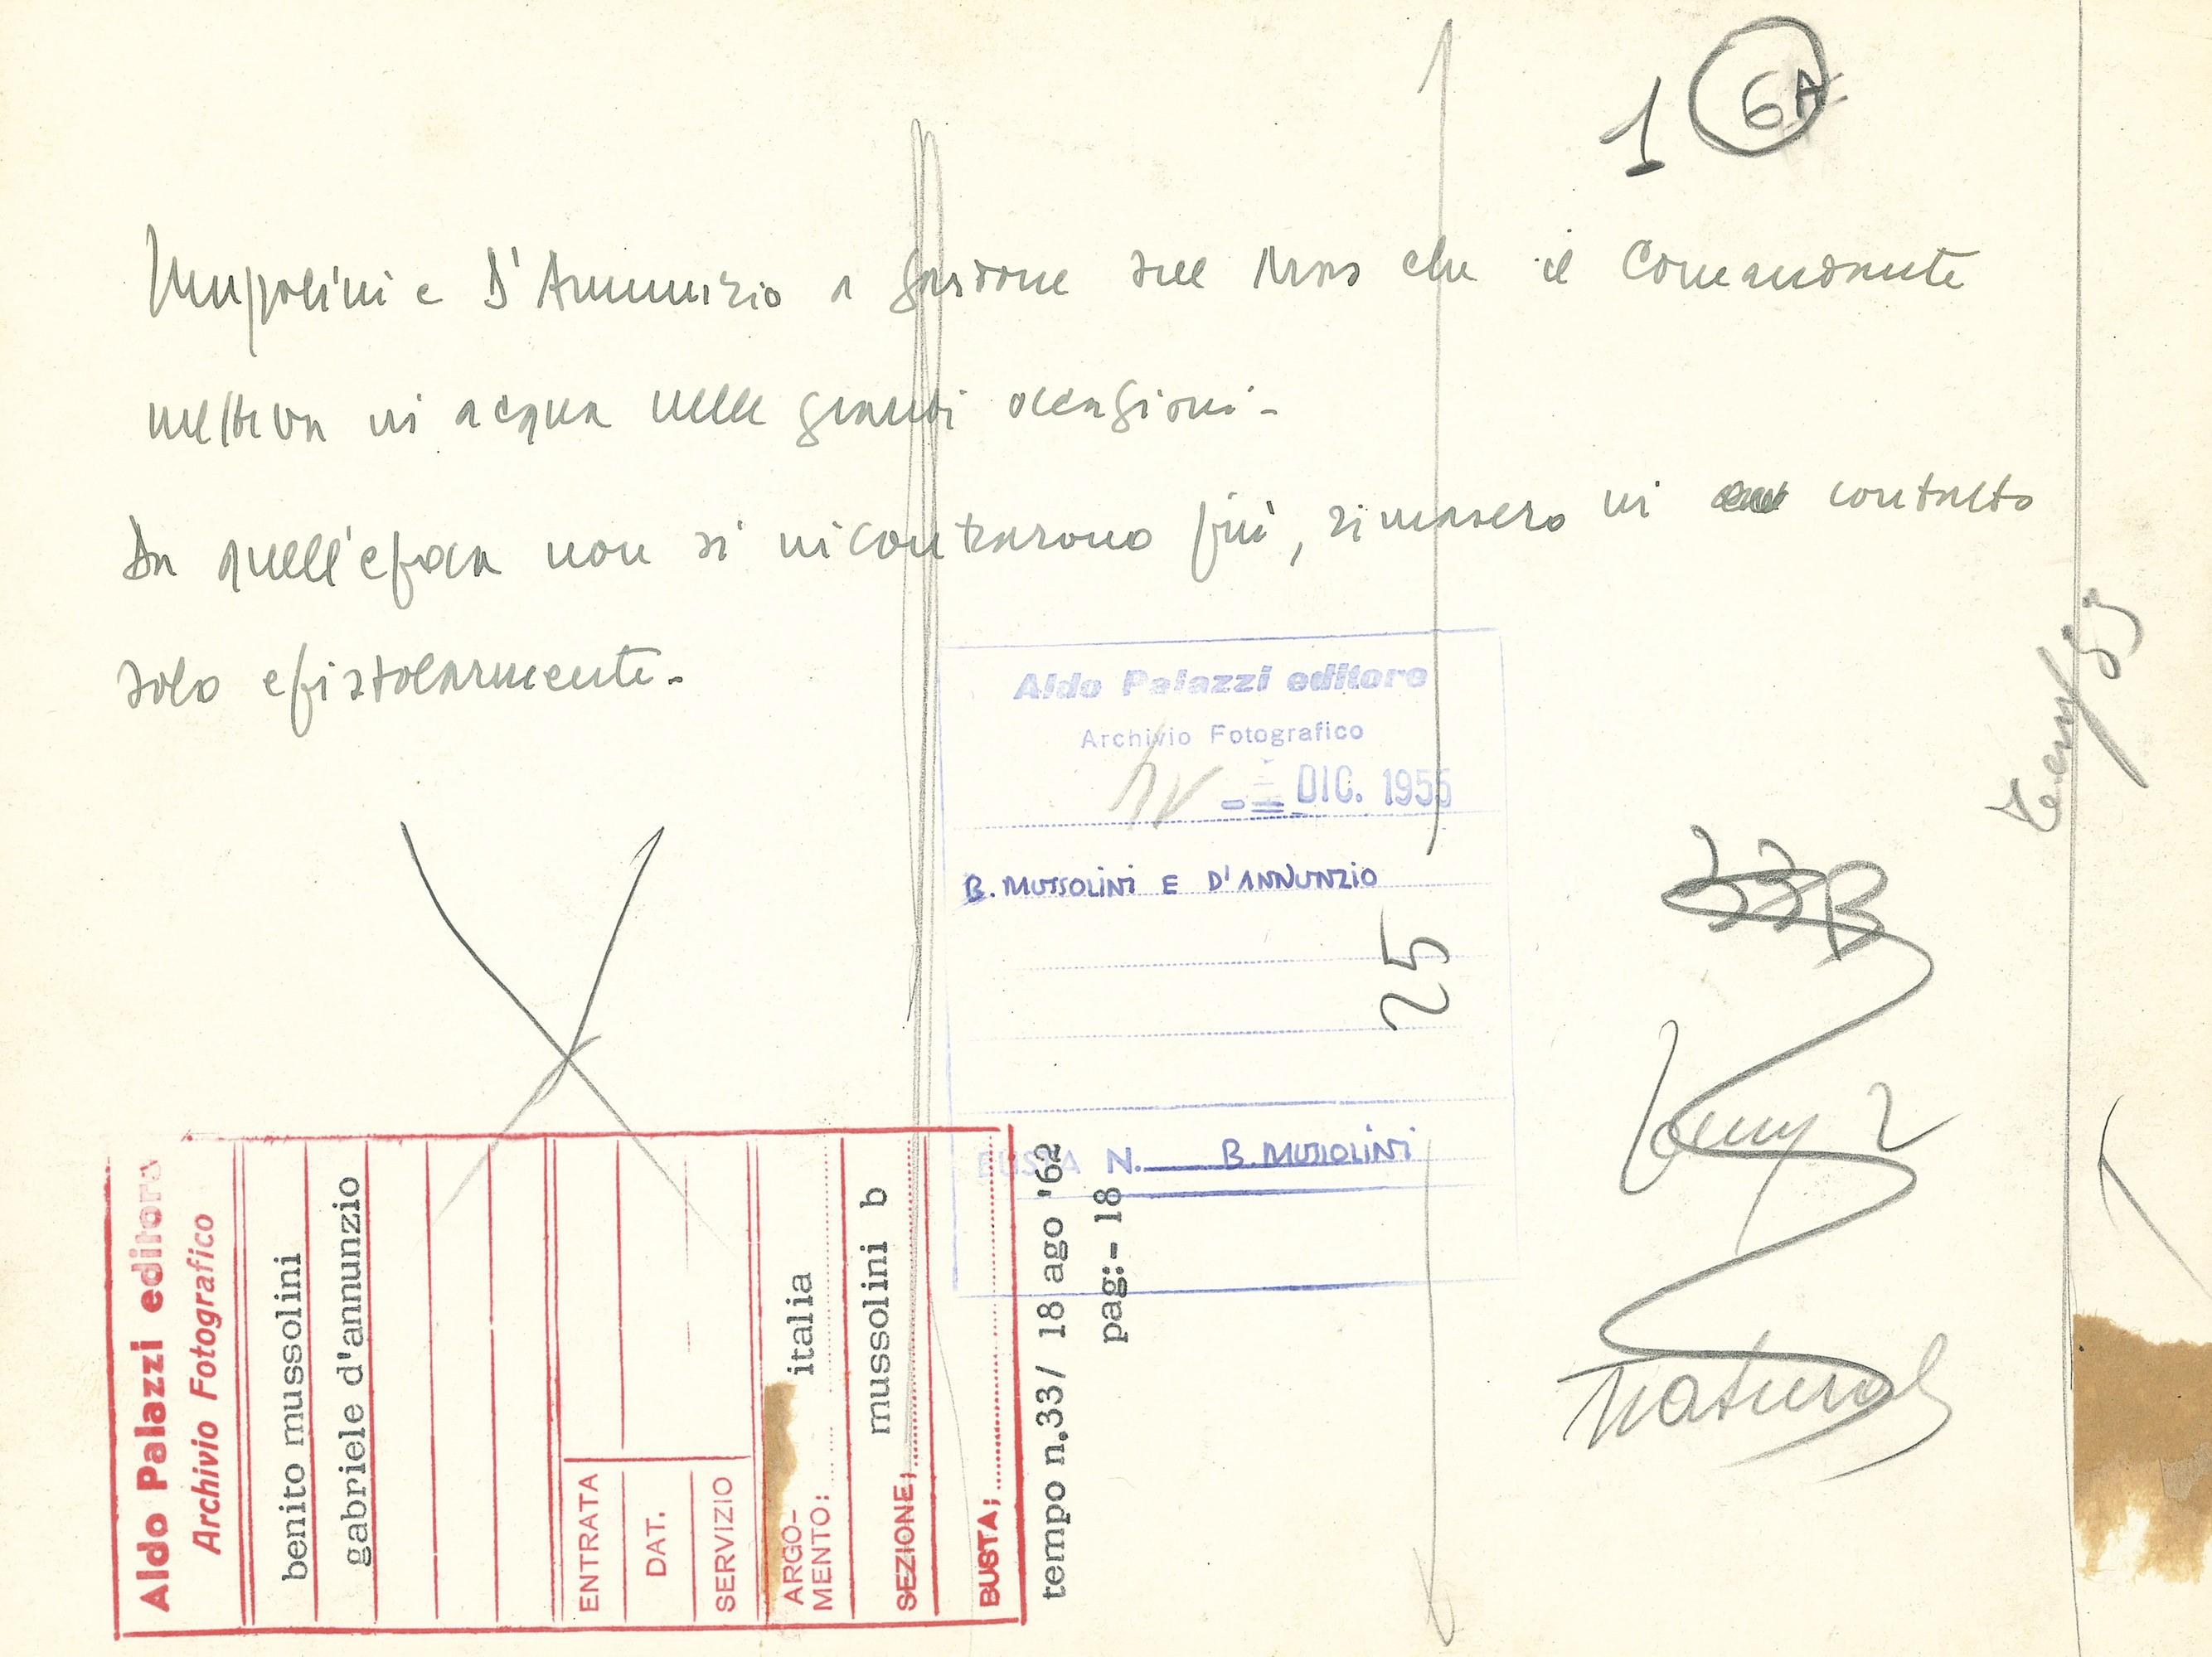 1 6A
Mussolini e D'Annunzio a Gardone sul Mas che il Comandante
metteva in acqua nelle grandi occasioni-
Da quell'epoca non si incontrarono più, rimasero in contatto
solo epistolarmente-
Aldo Palazzi editore
Archivio Fotografico
DIC. 1955
B. MUSSOLINI E D'ANNUNZIO
25
BUSTA N. B. MUSSOLINI
33B
2
Natural
Aldo Palazzi editore
Archivio Fotografico
benito mussolini
gabriele d'annunzio
ENTRATA
DAT.
SERVIZIO
ARGO-
MENTO: italia
mussolini b
SEZIONE;
BUSTA;
tempo n.33/ 18 ago '62
pag:- 18